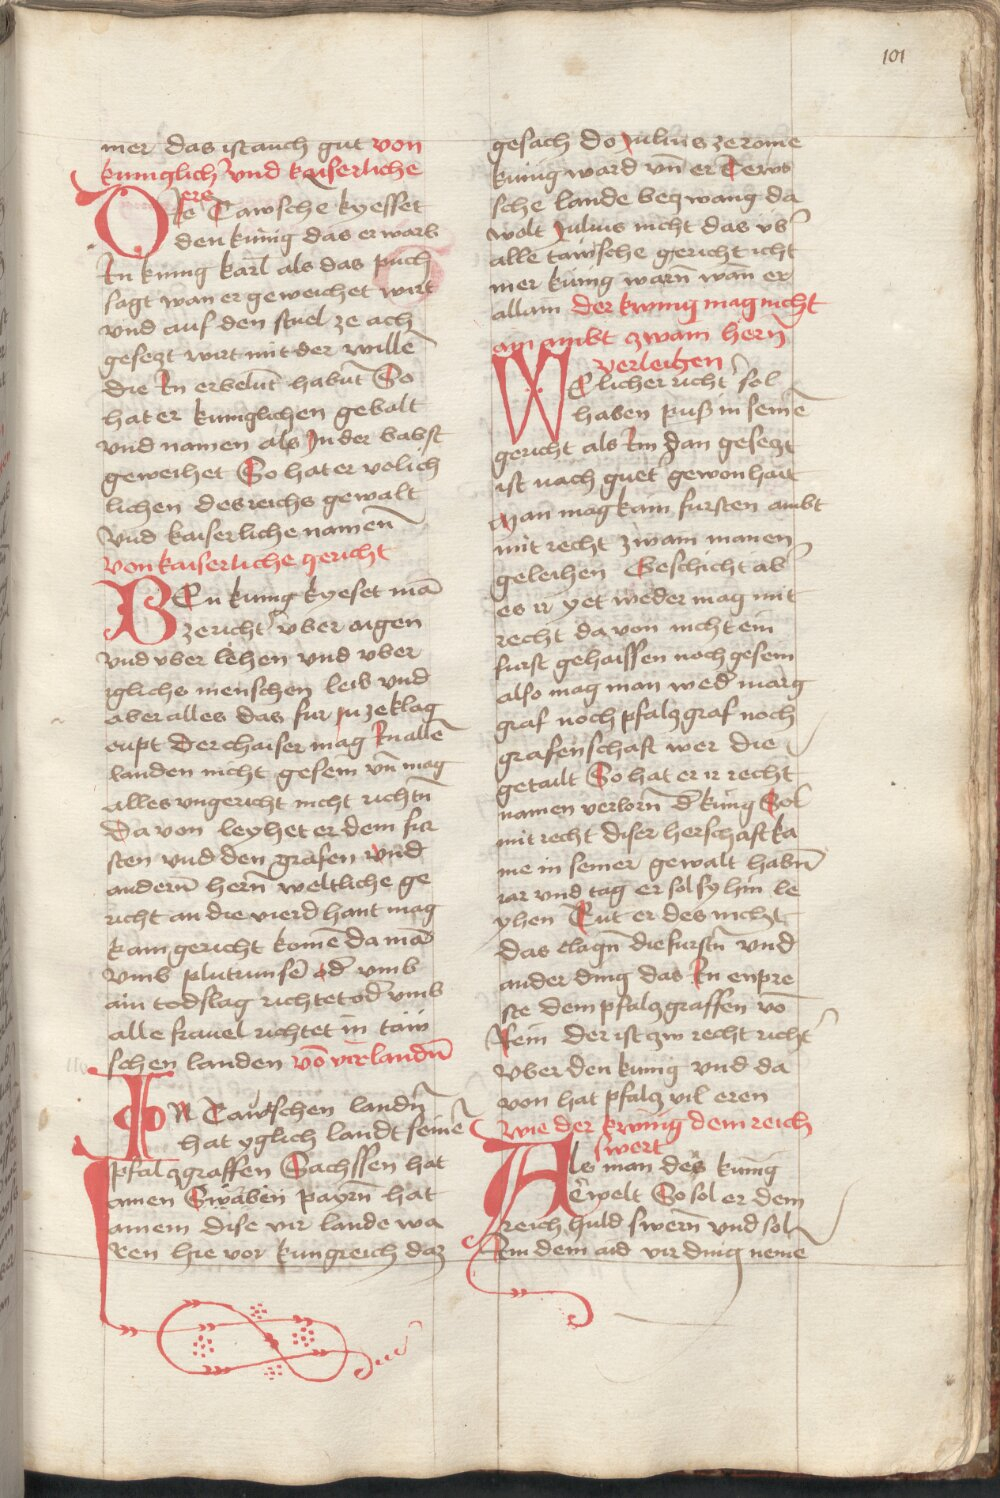 101
mer das ist auch gut von
kuniglich' vnd kaiserliche
ere
Die Tawsche kyesset
den kunig das erwarb
In kunig karl als das puch
sagt wan er geweichet wirt
vnd auf den stuel ze ach
gesezt wirt mit der wille͂
die In erbelut habut So
hat er kuniglichen gebalt
vnd namen als In der babst
geweihet So hat er volich
lichen des reichs gewalt
vnd kaiserliche namen
von kaiserliche gericht
Den kunig kyeset ma͂
ze richt' vber aigen
vnd vber lehen vnd vber
igliche menschen leib vnd
aber alles das fur in ze klag
cupt Der chaiser mag In alle͂
landen nicht gesein vn͂ mag
alles vngericht nicht richtn͂
Da von leyhet er dem fur
sten vnd den grafen vnd
andern͂ hern͂ weltliche ge
richt an die vierd hant mag
kain gericht kome͂ da ma͂
vmb plutrunse͂ od' vmb
ain todslag richtet od' vmb
alle frauel richtet in taw
schen landen vo͂ vir landn͂
In Tawschen landn͂
hat yglich landt seine͂
pfalczgraffen Sachssen hat
ainen Swaben payrn͂ hat
ainem dise vir lande wa
ren hie vor kungreich daz
gesach do Julius ze rome
kunig ward vn͂ er Tews
sche lande bezwang da
wolt Julius nicht das vb'
alle tawsche gericht icht
mer kunig warn͂ wan͂ er
allain der kwnig mag nicht
ain ambt zwain hern͂
verleihen
Welicher richt' sol
haben puß in seine͂
gericht als Im Dan gesezt
ist nach guet' gewonhait
Man mag kain fursten ambt
mit recht zwain manen
geleihen Geschicht ab'
es ir yetweder mag mit
recht da von nicht ein
furst gehaissen noch gesein
also mag man wed' marg
graf noch pfalczgraf noch
grafenschaft wer die
getailt So hat er ir recht
namen verlorn͂ d' kung Sol
mit recht diser herschaft ka
ine in seiner gewalt habn͂
iar vnd tag er sol sy hin le
yhen Tut er des nicht
das clagn͂ die furstn͂ vnd
ander ding das In enpre
ste dem pfalczgraffen vo͂
Rein der ist zw recht richt'
vber den kunig vnd da
von hat pfalcz vil eren
wie der kwnig dem reich
swert
Als man den kunig
erwelt So sol er dem
reich huld swern͂ vnd sol
Im dem aid vir ding neme͂